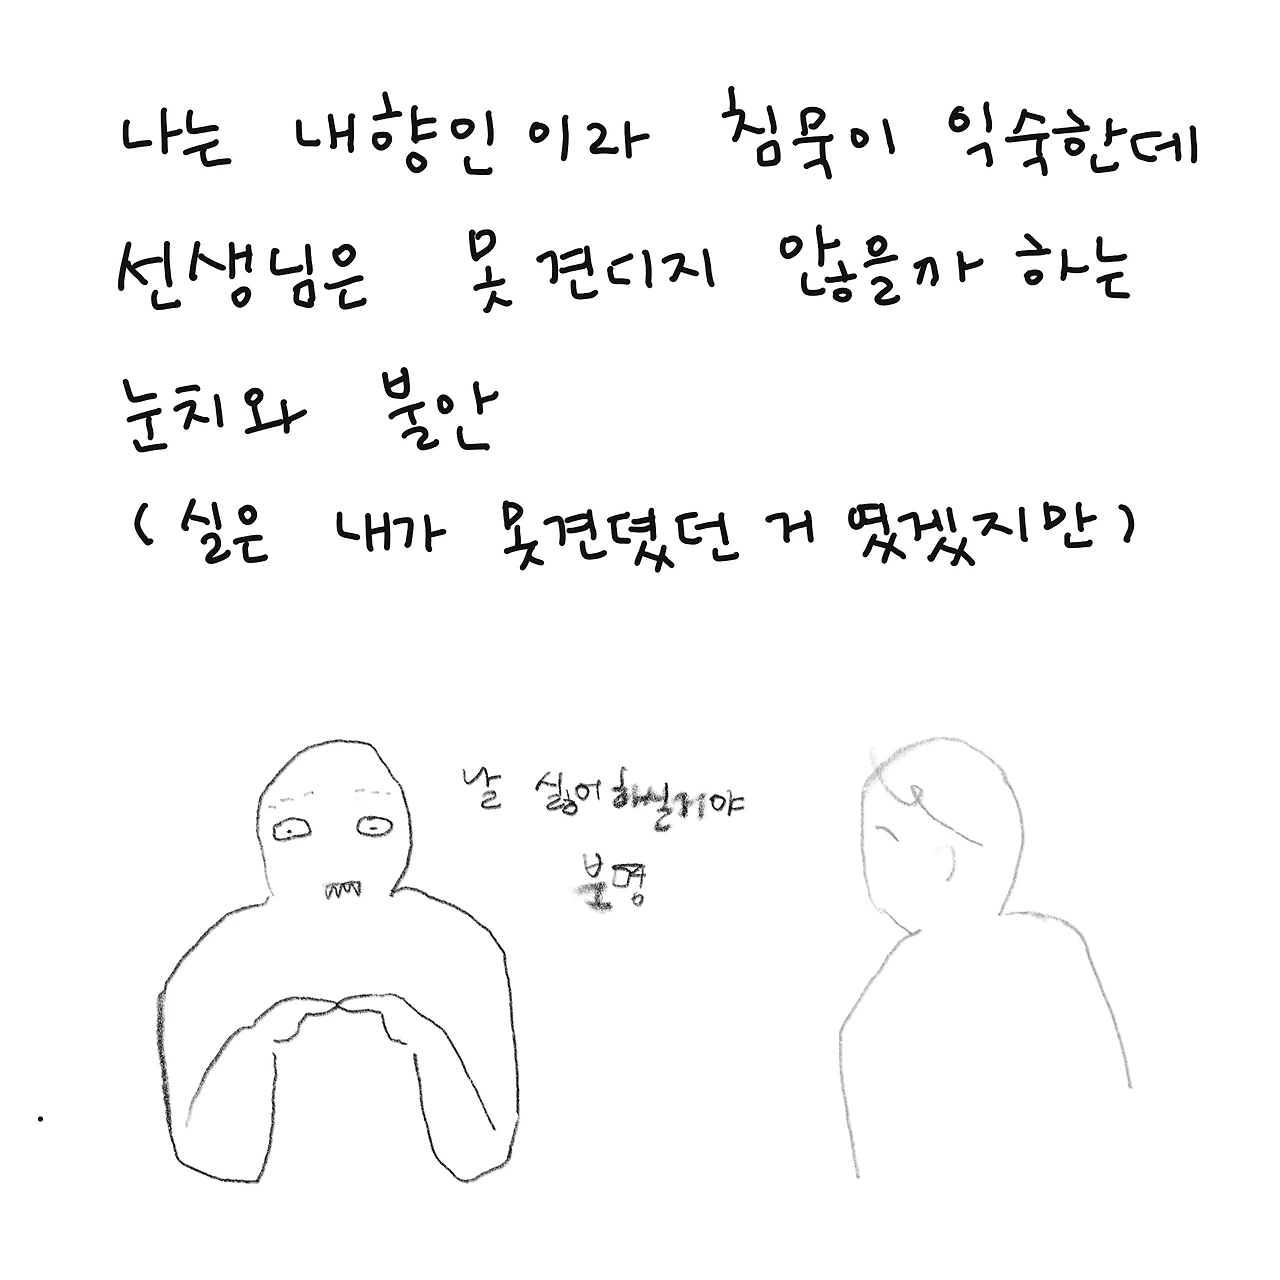 나는 내향인이라 침묵이 익숙한데
선생님은 못 견디지 않을까 하는
눈치와 불안
(실은 내가 못견뎠던 거 였겠지만)
날 싫어하실거야
분명